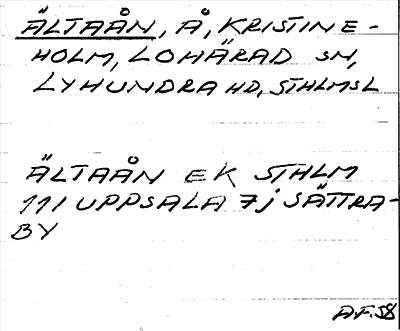 ÄLTAÅN, Å, KRISTINE-
HOLM, LOHÄRAD SN,
LYHUNDRA HD, STHLMSL
ÄLTAÅN EK STHLM
111 UPPSALA 7j SÄTTRA-
BY
A.F. 58